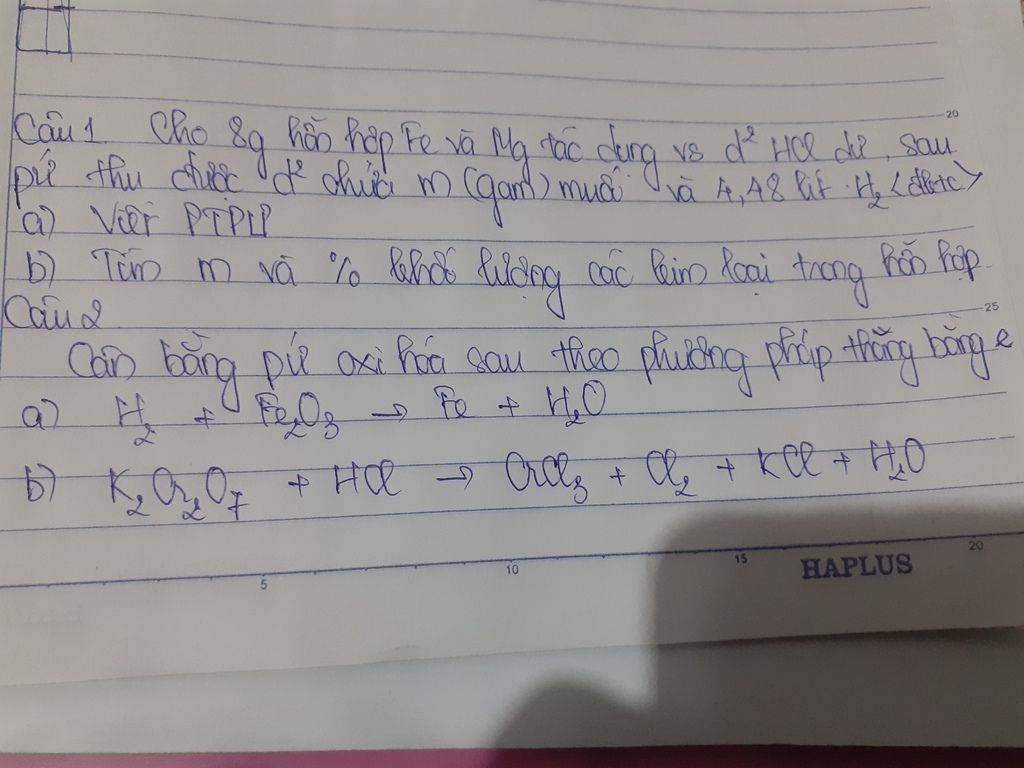 20
Câu 1 Cho 8g hỗn hợp Fe và Mg tác dụng vs d² HCl dư, sau
pứ thu được d² chứa m (gam) muối và 4,48 lít H₂ <đktc>
a) Viết PTPƯ
b) Tính m và % khối lượng các kim loại trong hỗn hợp
25
Câu 2
Cân bằng pứ oxi hóa sau theo phương pháp thăng bằng e
a) H₂ + Fe₂O₃ → Fe + H₂O
b) K₂Cr₂O₇ + HCl → CrCl₃ + Cl₂ + KCl + H₂O
5 10 15 20
HAPLUS